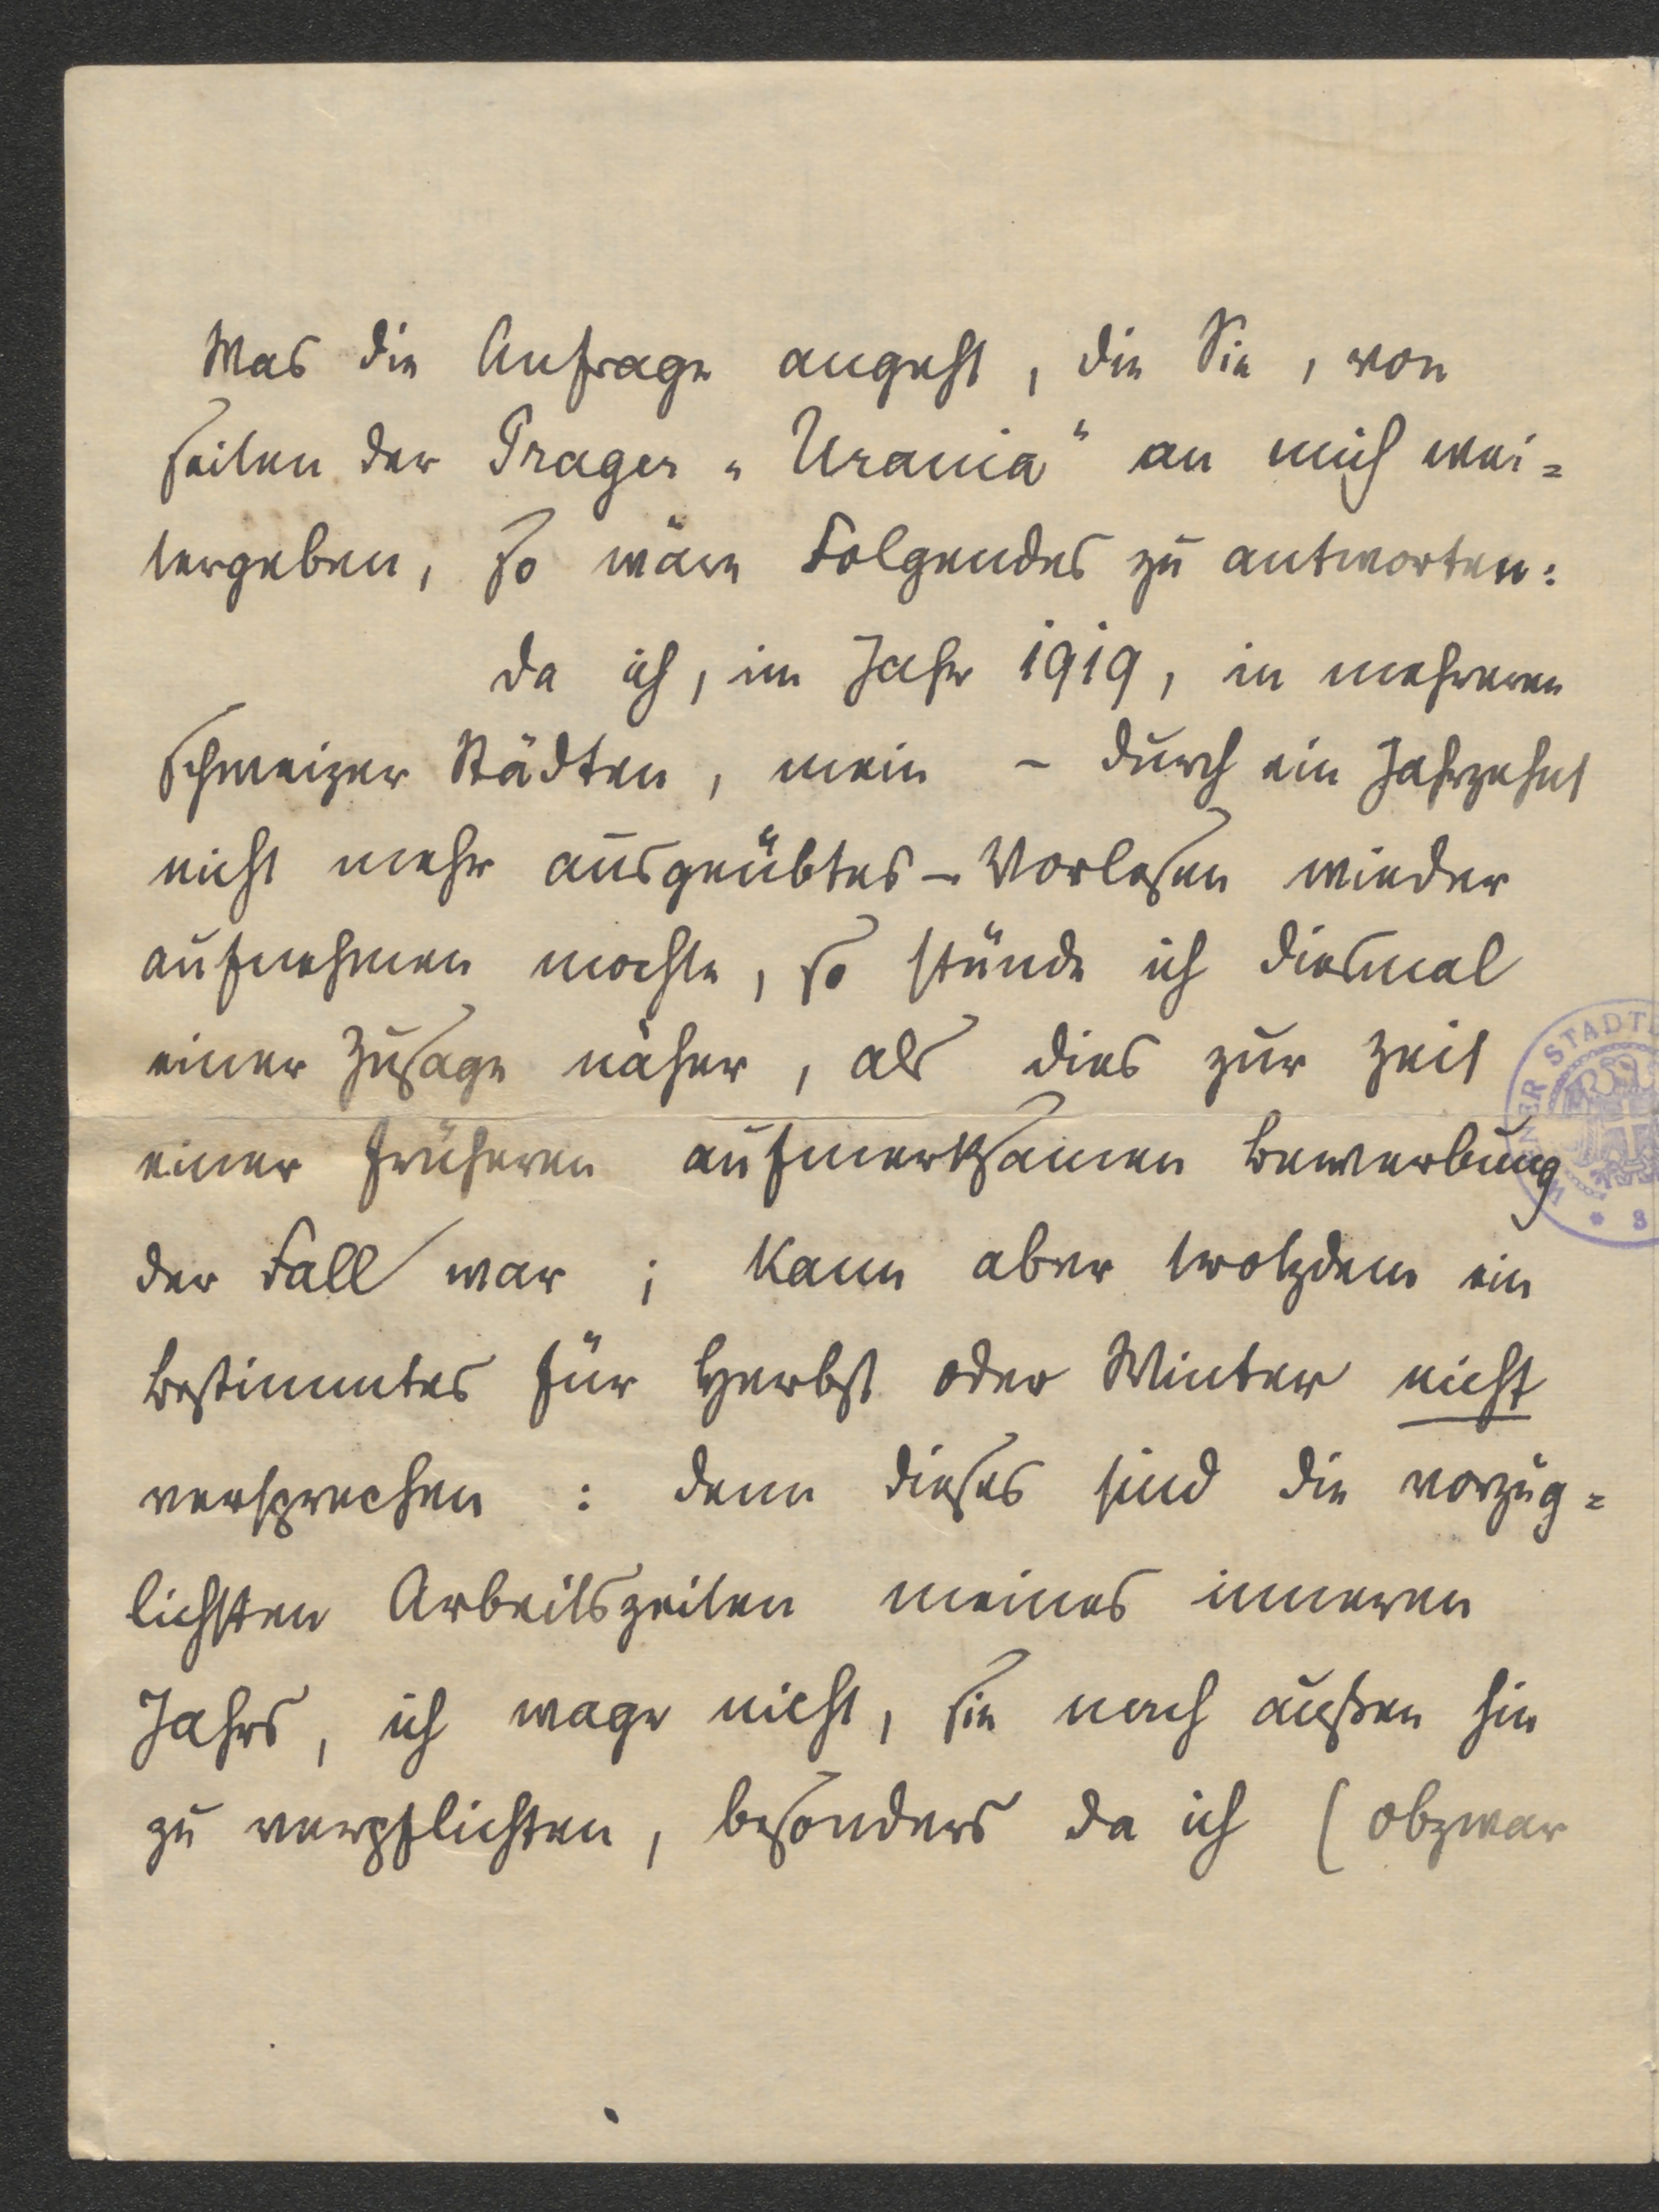 Was die Anfrage angeht, die Sie, von
seiten der Prager „Urania" an mich wei=
tergeben, so wäre Folgendes zu antworten:
da ich, im Jahr 1919, in mehreren
schweizer Städten, mein – durch ein Jahrzehnt
nicht mehr ausgeübtes – Vorlesen wieder
aufnehmen mochte, so stünde ich diesmal
einer Zusage näher, als dies zur Zeit
einer früheren aufmerksamen Bewerbung
der Fall war; kann aber trotzdem ein
Bestimmtes für Herbst oder Winter nicht
versprechen: denn dieses sind die vorzüg=
lichsten Arbeitszeiten meines inneren
Jahrs, ich wage nicht, sie nach außen hin
zu verpflichten, besonders da ich (obzwar
WIENER STADT